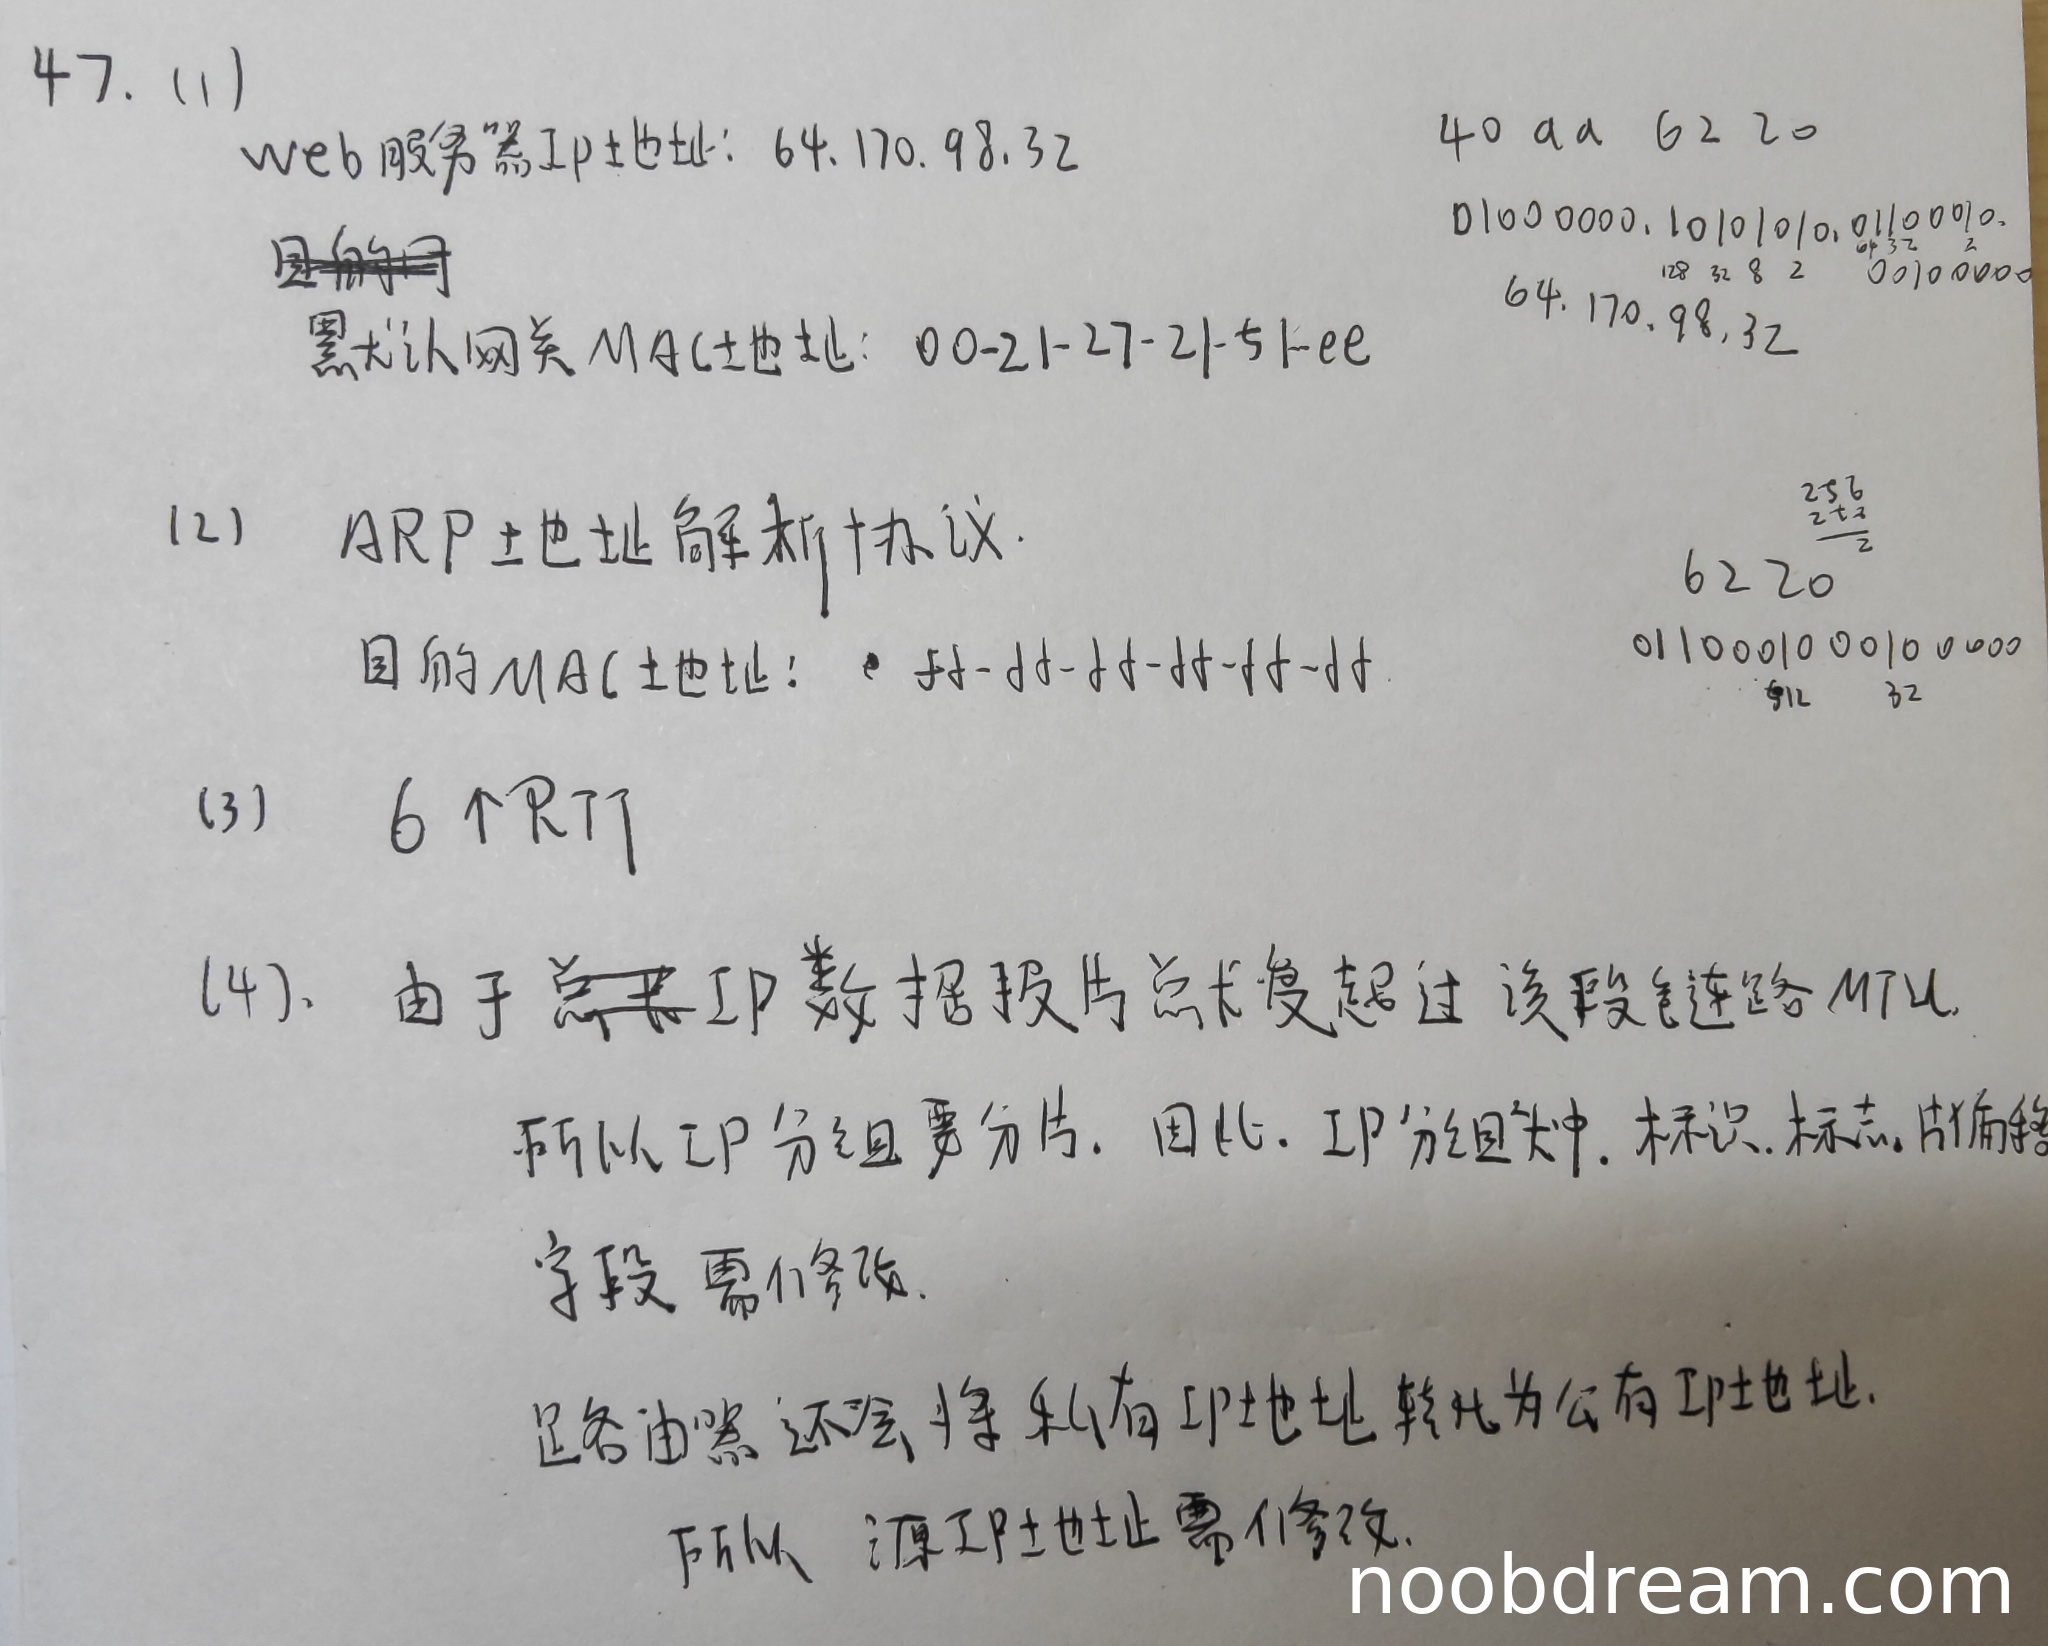 47. (1)
Web服务器IP地址: 64.170.98.32
40 aa 62 20
01000000.10101010.01100010.
64 32 2
128 32 8 2
00100000
64.170.98.32
目的
默认网关MAC地址: 00-21-27-21-51-ee
(2) ARP地址解析协议.
256
2
6220
目的MAC地址: ff-ff-ff-ff-ff-ff.
0110001000100000
512 32
(3) 6个RTT
(4). 由于 IP数据报片总长度超过 该段链路MTU.
所以IP分组要分片. 因此. IP分组头中. 标识. 标志. 片偏移
字段 需修改.
路由器 还会 将 私有IP地址 转化为公有IP地址.
所以 源IP地址需修改.
noobdream.com